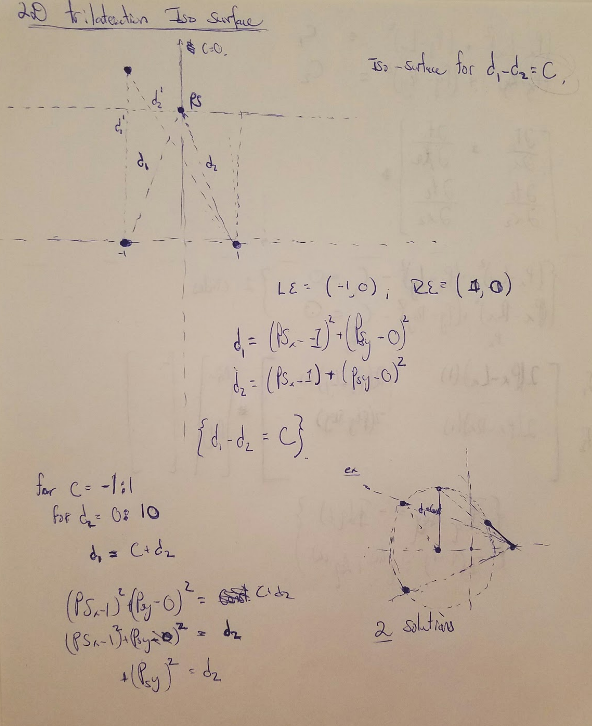 2D trilateration Iso surface
C=0.
Iso-surface for d₁-d₂=C.
PS
d₂'
d₁'
d₁
d₂
-1
1
LE = (-1,0), RE = (1,0)
d₁ = (PSₓ-1)²+(Psy-0)²
d₂ = (PSₓ-1)+(Psy-0)²
{d₁-d₂ = C}
ex
for C = -1:1
for d₂ = 0:10
d₁ = C+d₂
(PSₓ-1)²+(Psy-0)² = C+d₂
(PSₓ-1²)+(Psy-0)² = d₂
+(Psy)² = d₂
2 solutions